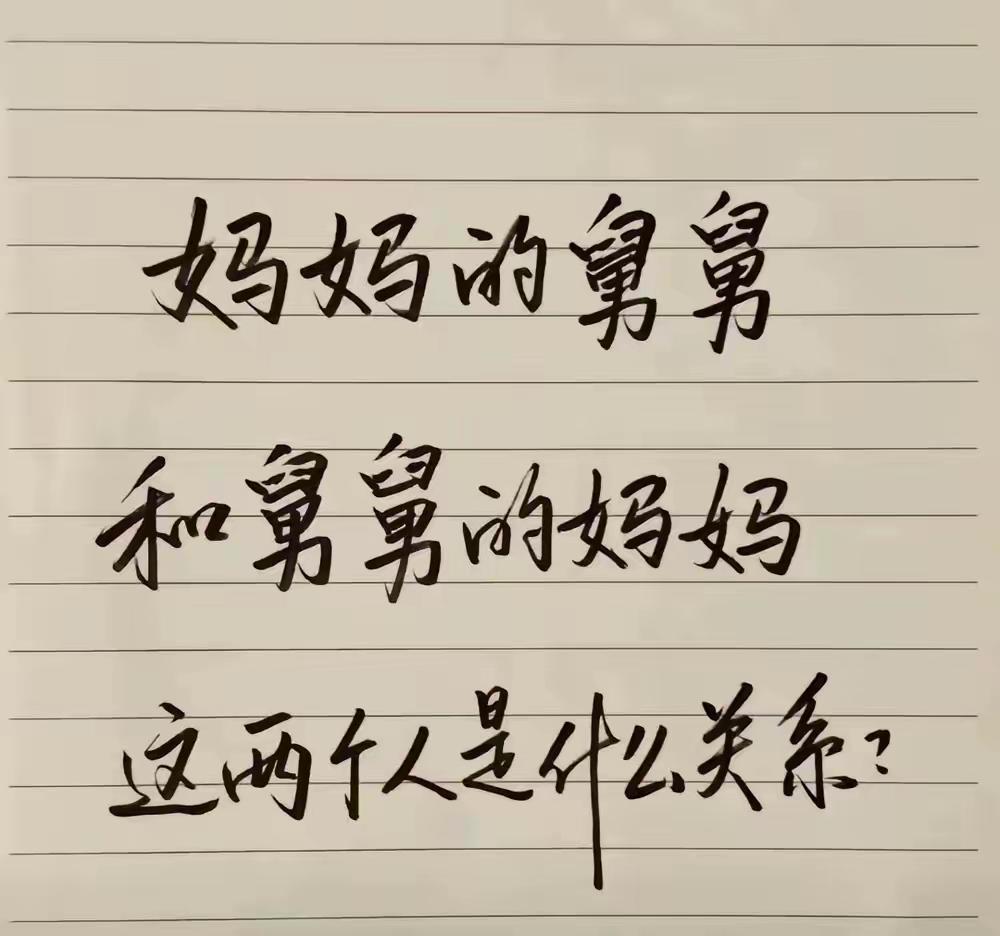 妈妈的舅舅
和舅舅的妈妈
这两个人是什么关系?